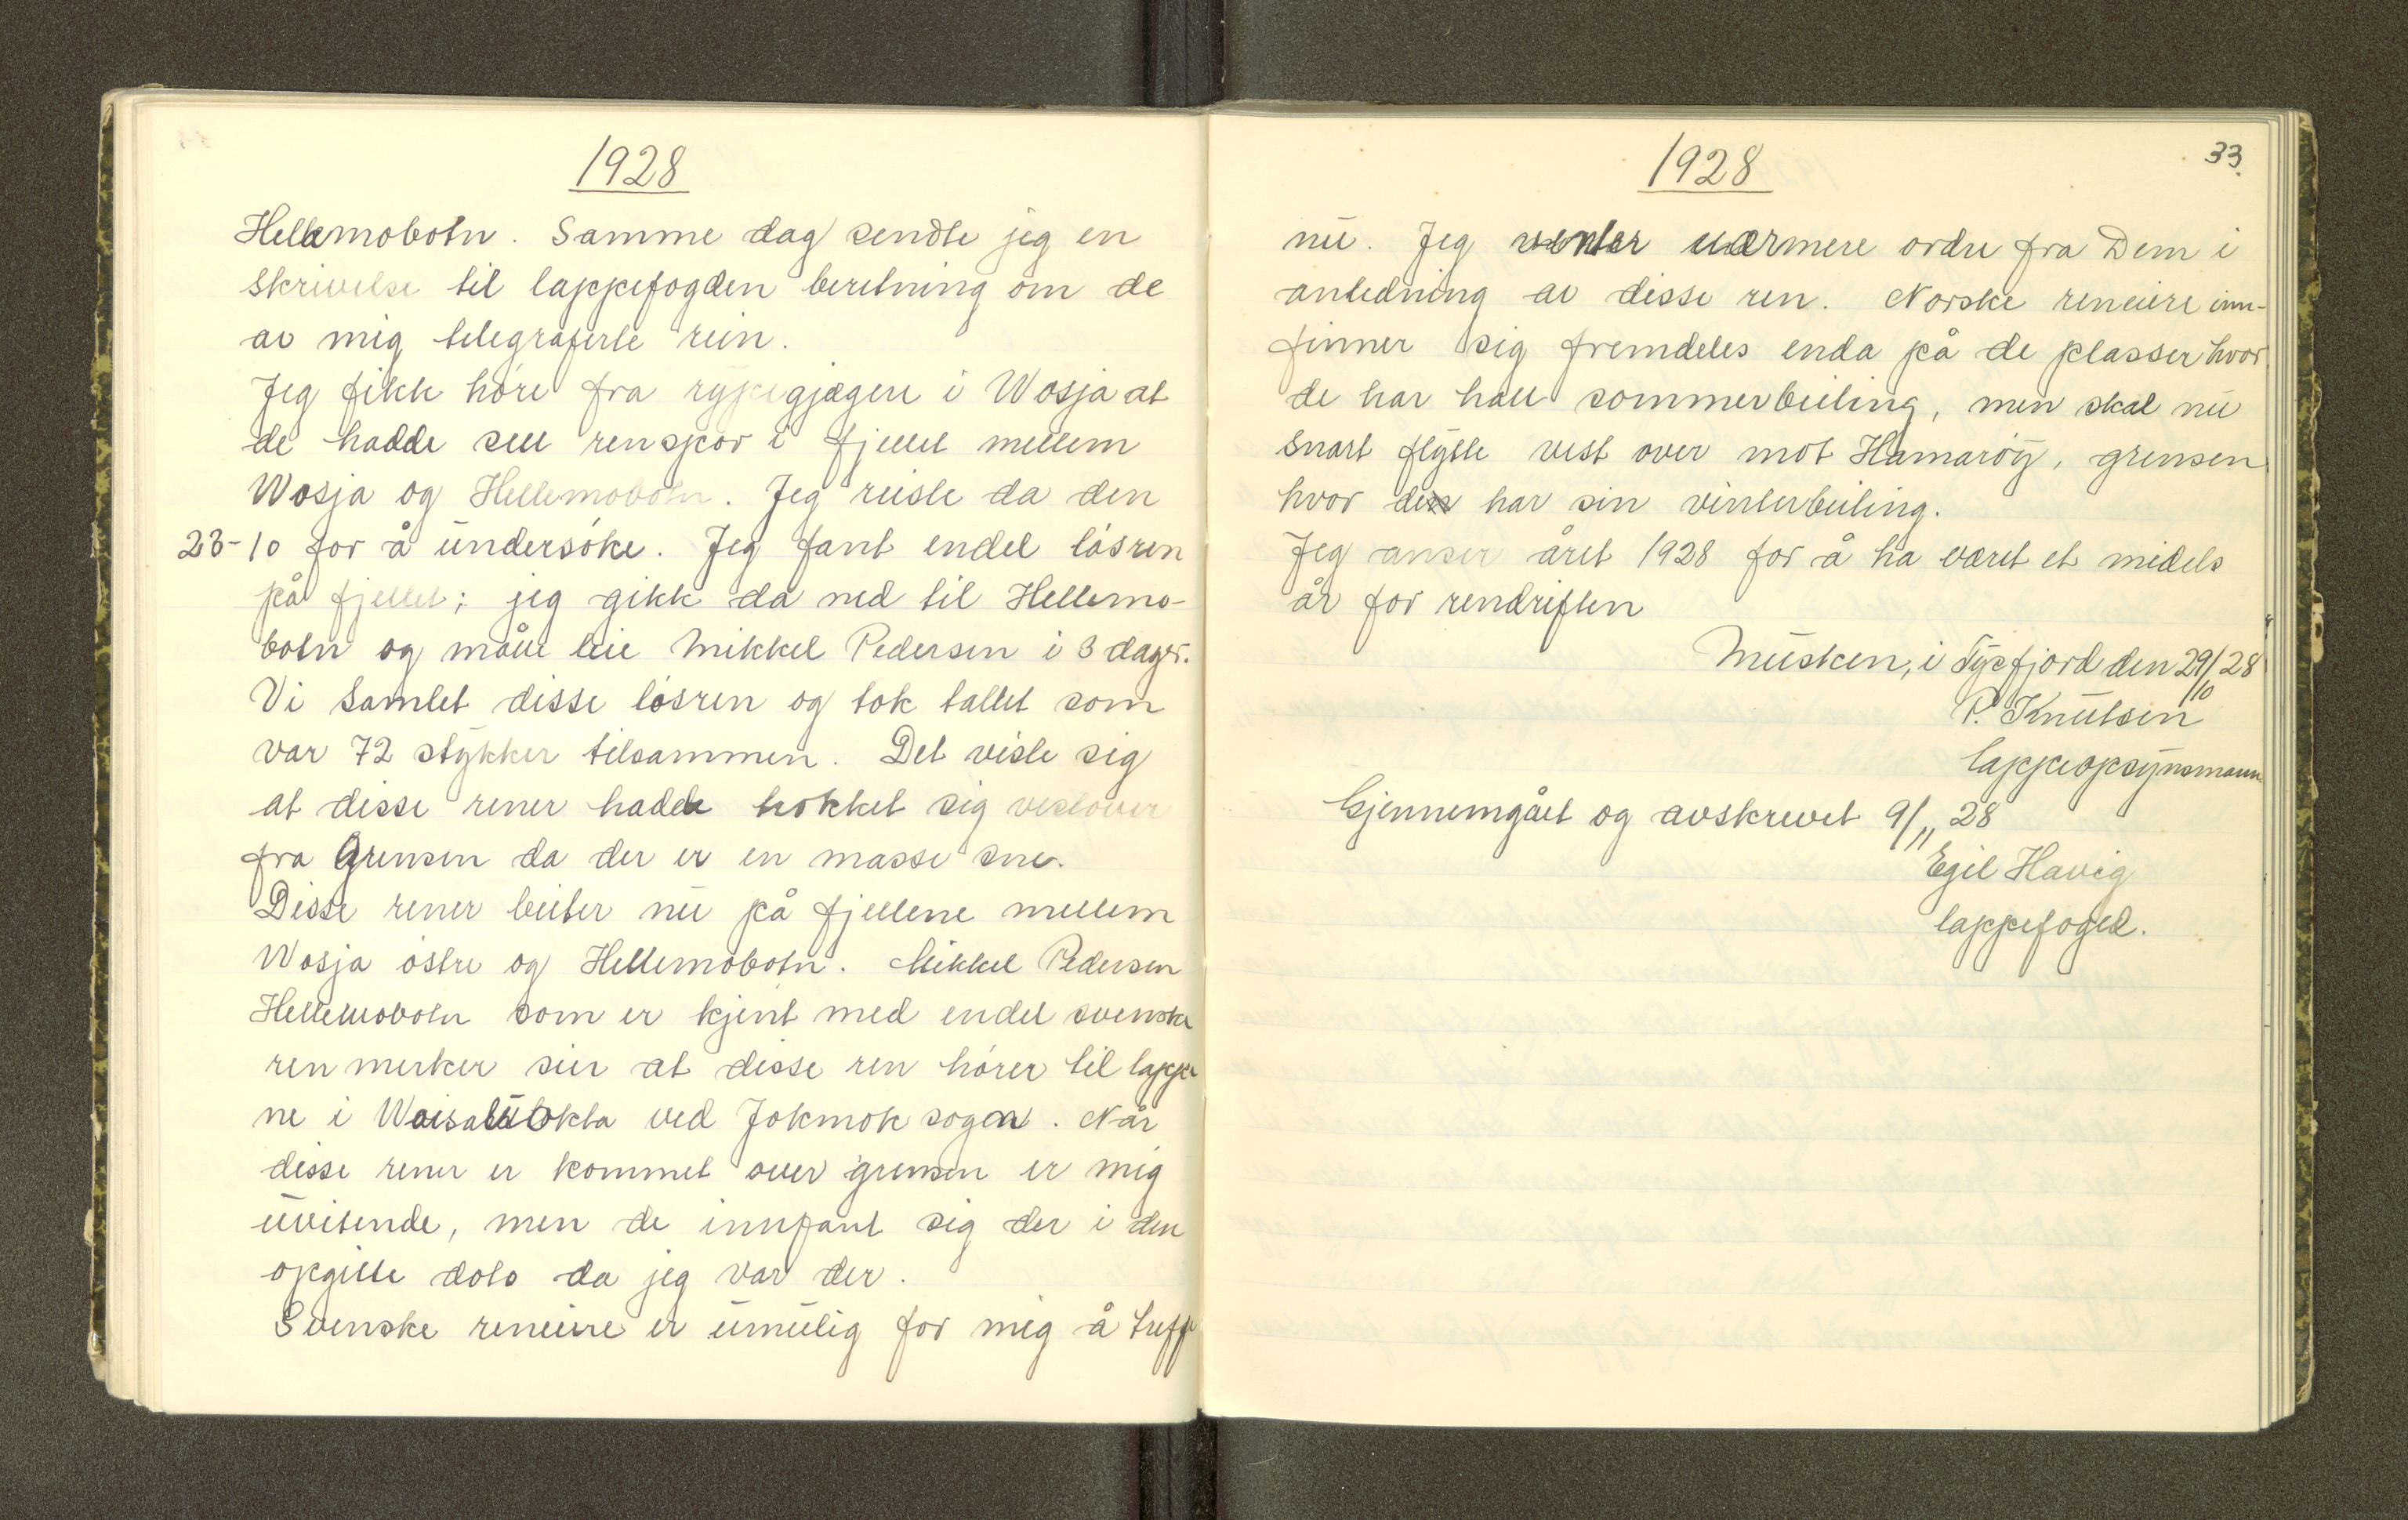 1928
Hellemobotn. Samme dag sendte jeg en
skrivelse til lappefogden beretning om de
av mig telegraferte rein.
Jeg fikk høre fra rypegjægere i Wosja at
de hadde sett renspor i fjellet mellem
Wosja og Hellemobotn. Jeg reiste da den
23-10 for å undersøke. Jeg fant endel løsren
på fjellet; jeg gikk da ned til Hellemo-
botn og måtte leie Mikkel Pedersen i 3 dager.
Vi samlet disse løsren og tok tallet som
var 72 stykker tilsammen. Det viste sig
at disse rener hadde trokket sig vestover
fra Grensen da der er en masse sne.
Disse rener beiter nu på fjellene mellem
Wosja østre og Hellemobotn. Mikkel Pedersen
Hellemobotn som er kjent med endel svenske
ren merker sier at disse ren hører til lappe
ne i Waisalüokta ved Jokmok sogen. Når
disse rener er kommet over grensen er mig
uvitende, men de innfant sig der i den
opgitte dato da jeg var der.
Svenske reneiere er umulig for mig å treffe
33.
1928
nu. Jeg venter nærmere ordre fra Dem i
anledning av disse ren. Norske reneiere inn-
finner sig fremdeles enda på de plasser hvor
de har hatt sommerbeiting, men skal nu
snart flytte vest over mot Hamarøy, grensen
hvor de har sin vinterbeiting.
Jeg anser året 1928 for å ha været et midels
år for rendriften
Musken, i Tysfjord den 29/10 28
P. Knutsen
lappeopsynsmann
Gjennemgået og avskrevet 9/11 28
Egil Havig
lappefoged.